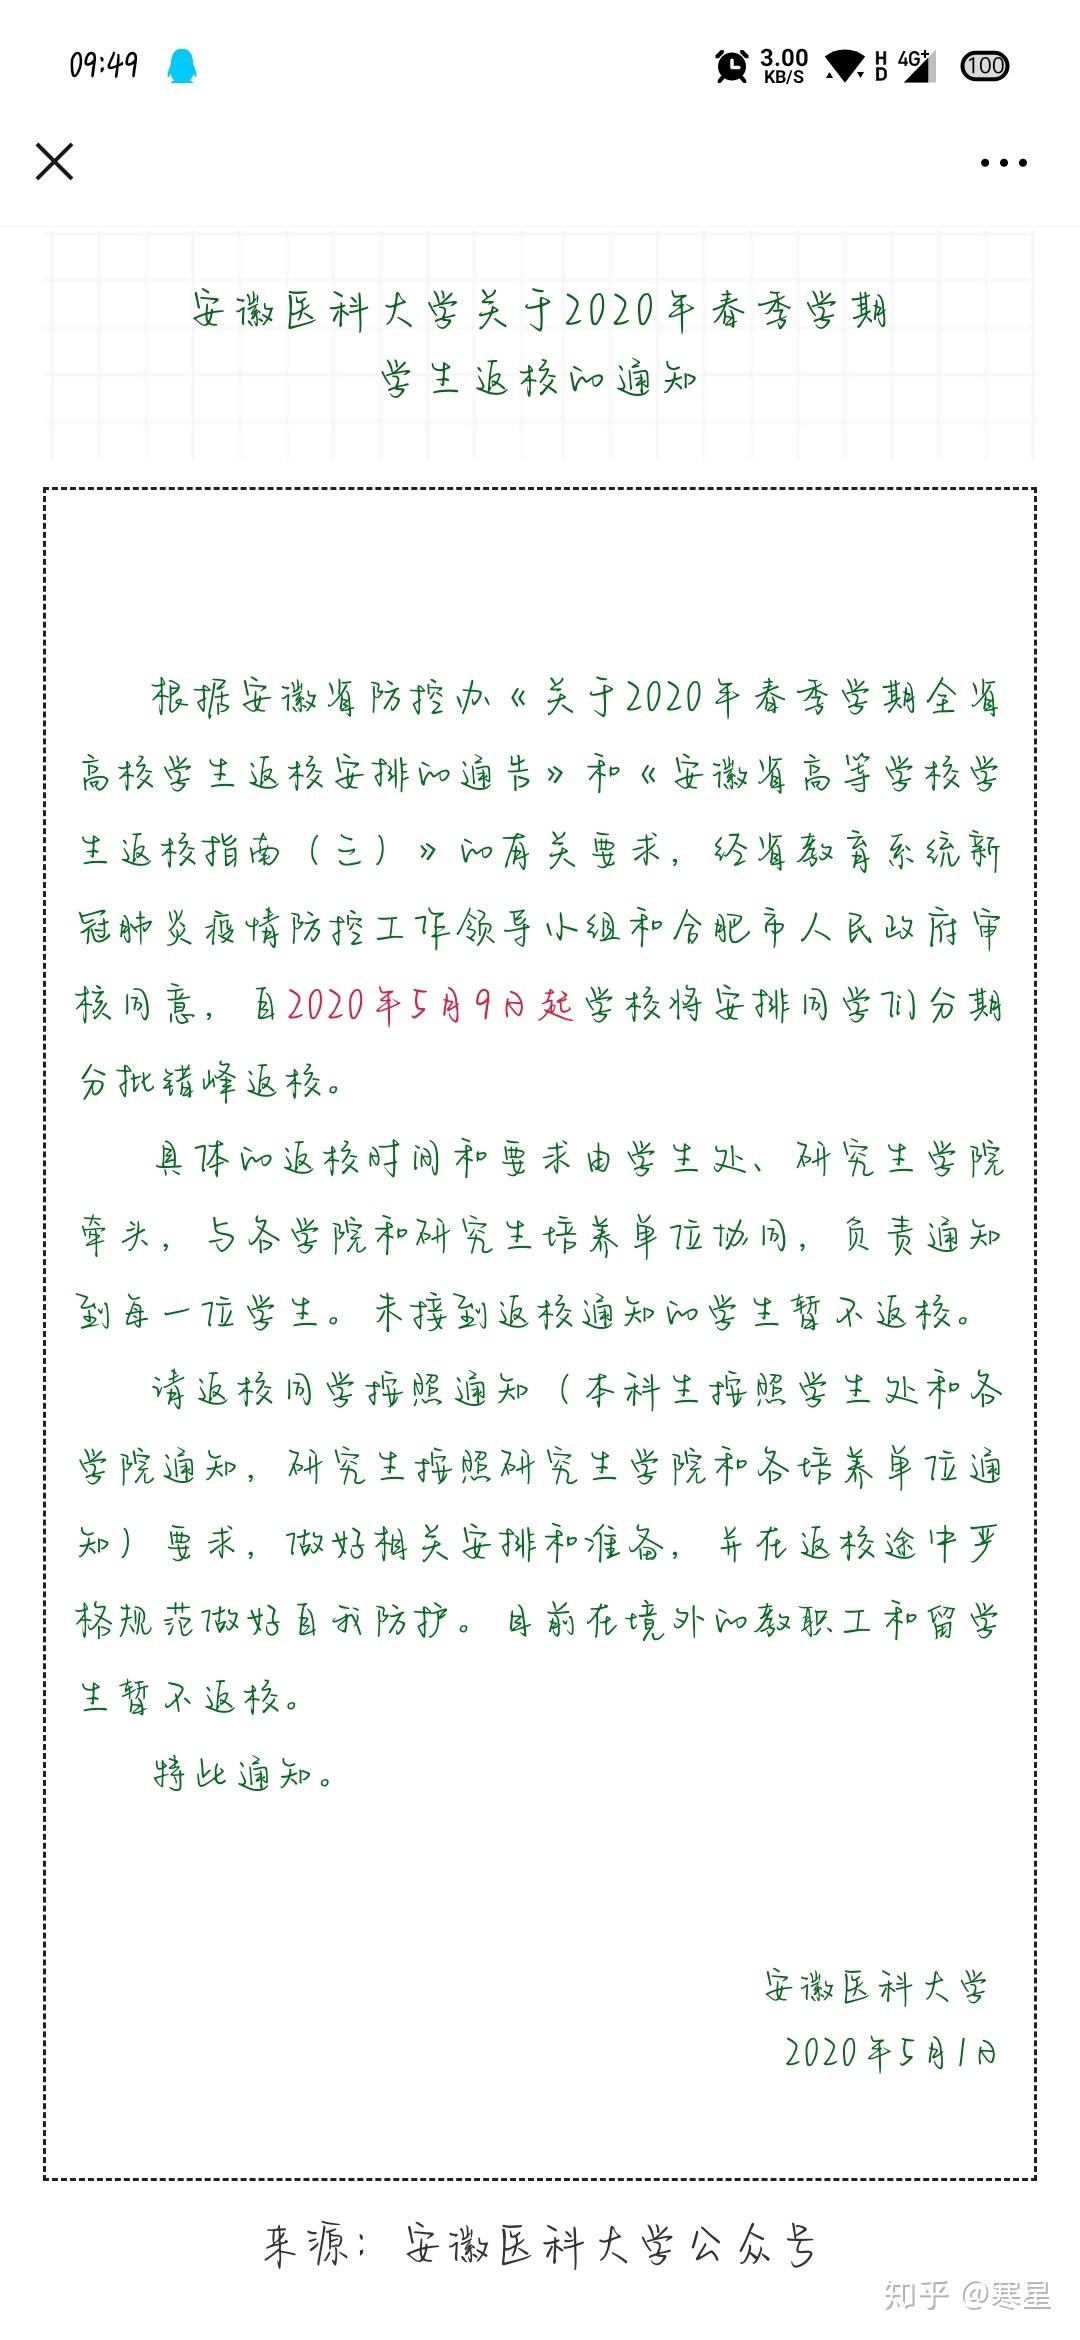 09:49
3.00
KB/S
HD
4G+
100
安徽医科大学关于2020年春季学期
学生返校的通知
根据安徽省防控办《关于2020年春季学期全省
高校学生返校安排的通告》和《安徽省高等学校学
生返校指南（三）》的有关要求，经省教育系统新
冠肺炎疫情防控工作领导小组和合肥市人民政府审
核同意，自2020年5月9日起学校将安排同学们分期
分批错峰返校。
具体的返校时间和要求由学生处、研究生学院
牵头，与各学院和研究生培养单位协同，负责通知
到每一位学生。未接到返校通知的学生暂不返校。
请返校同学按照通知（本科生按照学生处和各
学院通知，研究生按照研究生学院和各培养单位通
知）要求，做好相关安排和准备，并在返校途中严
格规范做好自我防护。目前在境外的教职工和留学
生暂不返校。
特此通知。
安徽医科大学
2020年5月1日
来源：安徽医科大学公众号
知乎 @寒星